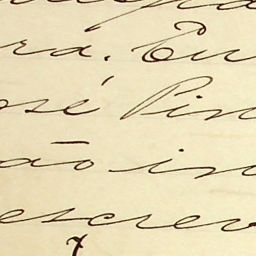 rá. Eu
osé Pin
ão in
escrev